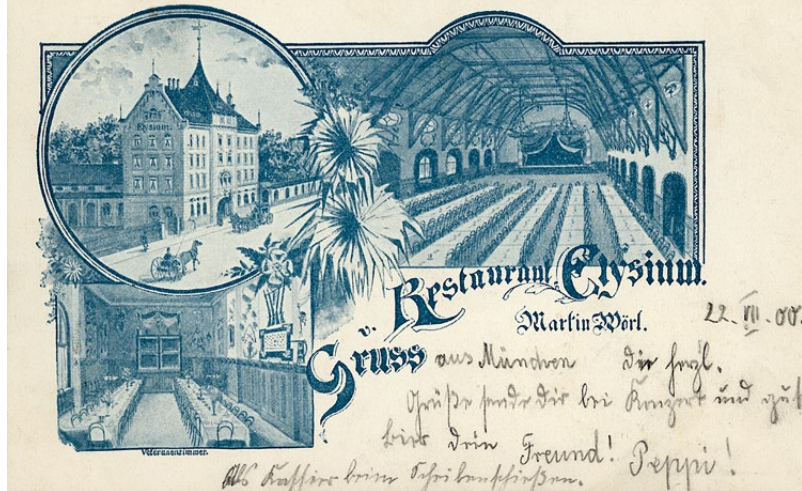 Elysium.
Restaurant Elysium.
Martin Wörl.
22. VII. 00.
Gruss v.
aus München die herzl.
Grüße sende dir bei Konzert und gut
bier dein Freund! Peppi!
Veteranenzimmer.
Als Kassier beim Scheibenschießen.